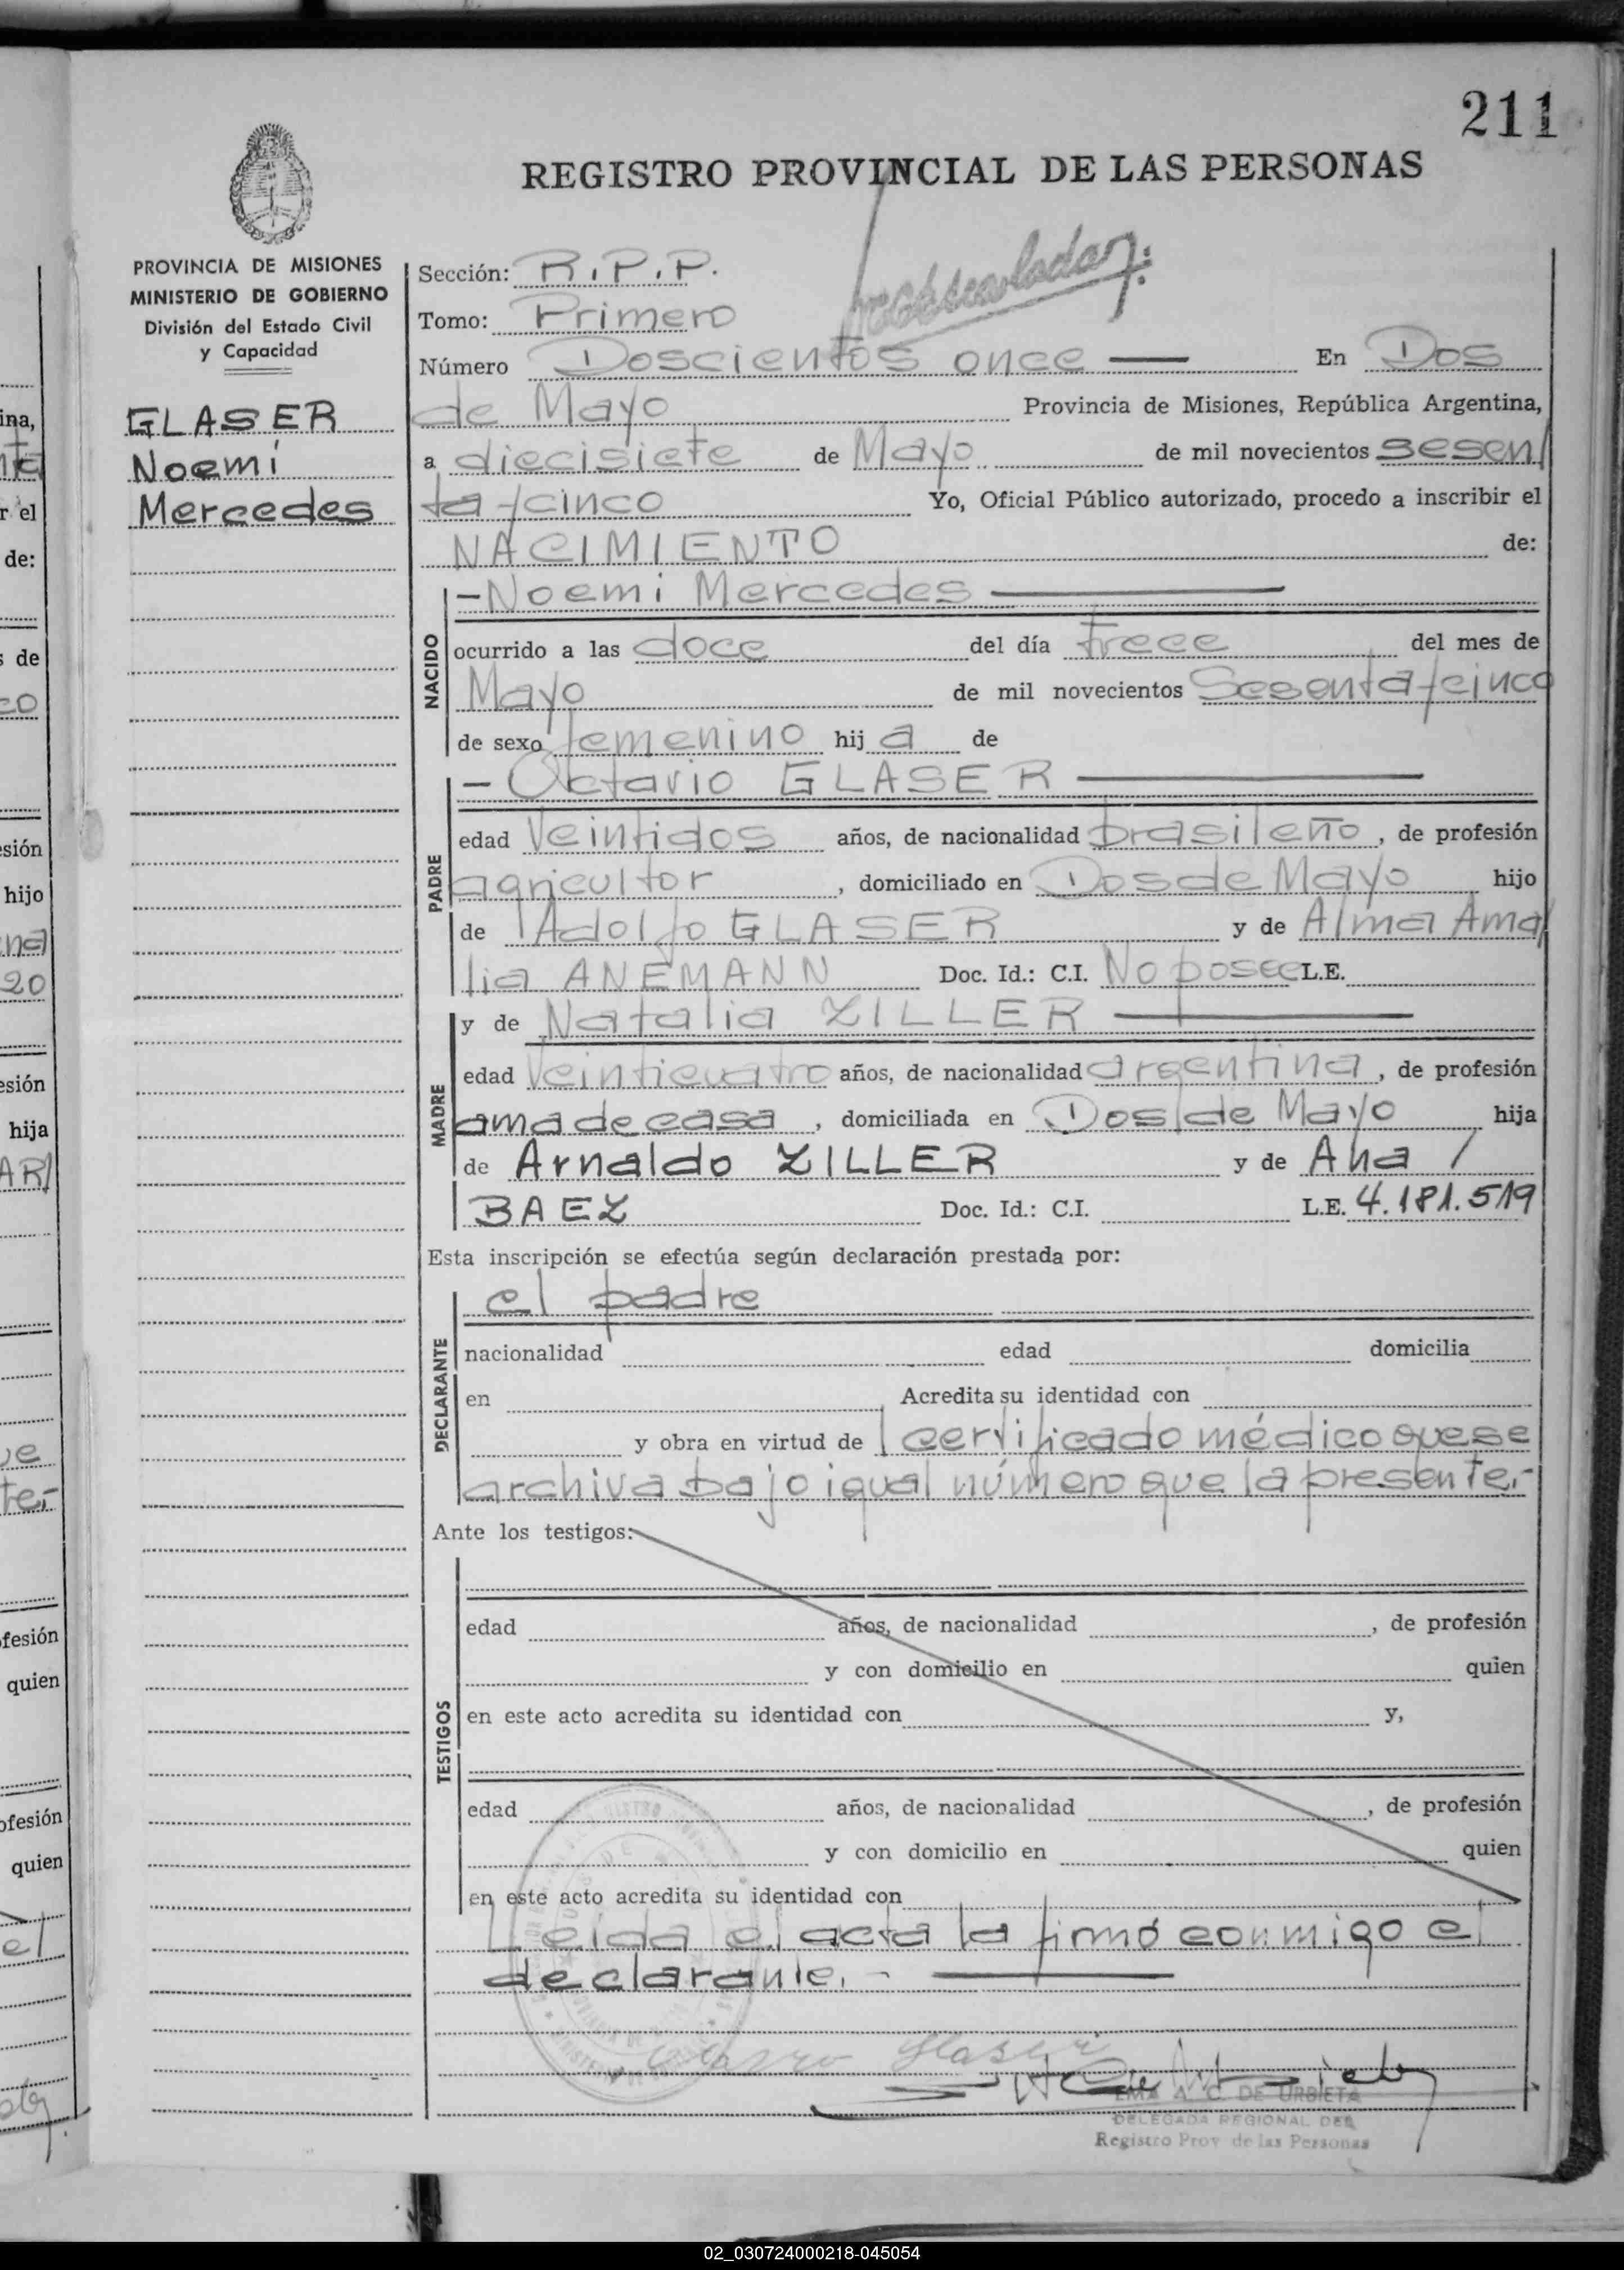 211
REGISTRO PROVINCIAL DE LAS PERSONAS
PROVINCIA DE MISIONES
MINISTERIO DE GOBIERNO
División del Estado Civil
y Capacidad
GLASER
Noemí
Mercedes
Sección: R.P.P.
Tomo: Primero
Número Doscientos once — En Dos
de Mayo Provincia de Misiones, República Argentina,
a diecisiete de Mayo de mil novecientos sesen/
ta y cinco Yo, Oficial Público autorizado, procedo a inscribir el
NACIMIENTO de:
NACIDO
- Noemi Mercedes —
ocurrido a las doce del día trece del mes de
Mayo de mil novecientos Sesenta y cinco
de sexo femenino hij a de
PADRE
- Octavio GLASER —
edad Veintidos años, de nacionalidad brasileño, de profesión
agricultor, domiciliado en Dos de Mayo hijo
de Adolfo GLASER y de Alma Ama/
lia ANEMANN Doc. Id.: C.I. No posee L.E.
MADRE
y de Natalia ZILLER —
edad Veinticuatro años, de nacionalidad argentina, de profesión
ama de casa, domiciliada en Dos de Mayo hija
de Arnaldo ZILLER y de Ana /
BAEZ Doc. Id.: C.I. L.E. 4.181.519
Esta inscripción se efectúa según declaración prestada por:
DECLARANTE
el padre
nacionalidad edad domicilia
en Acredita su identidad con
y obra en virtud de certificado médico que se
archiva bajo igual número que la presente.-
Ante los testigos:
TESTIGOS
edad años, de nacionalidad , de profesión
y con domicilio en quien
en este acto acredita su identidad con y,
edad años, de nacionalidad , de profesión
y con domicilio en quien
en este acto acredita su identidad con
Leida el acta la firmó conmigo el
declarante.- —
Glaser
EMA A. C. DE URBIETA
DELEGADA REGIONAL DEL
Registro Prov de las Personas
02_030724000218-045054